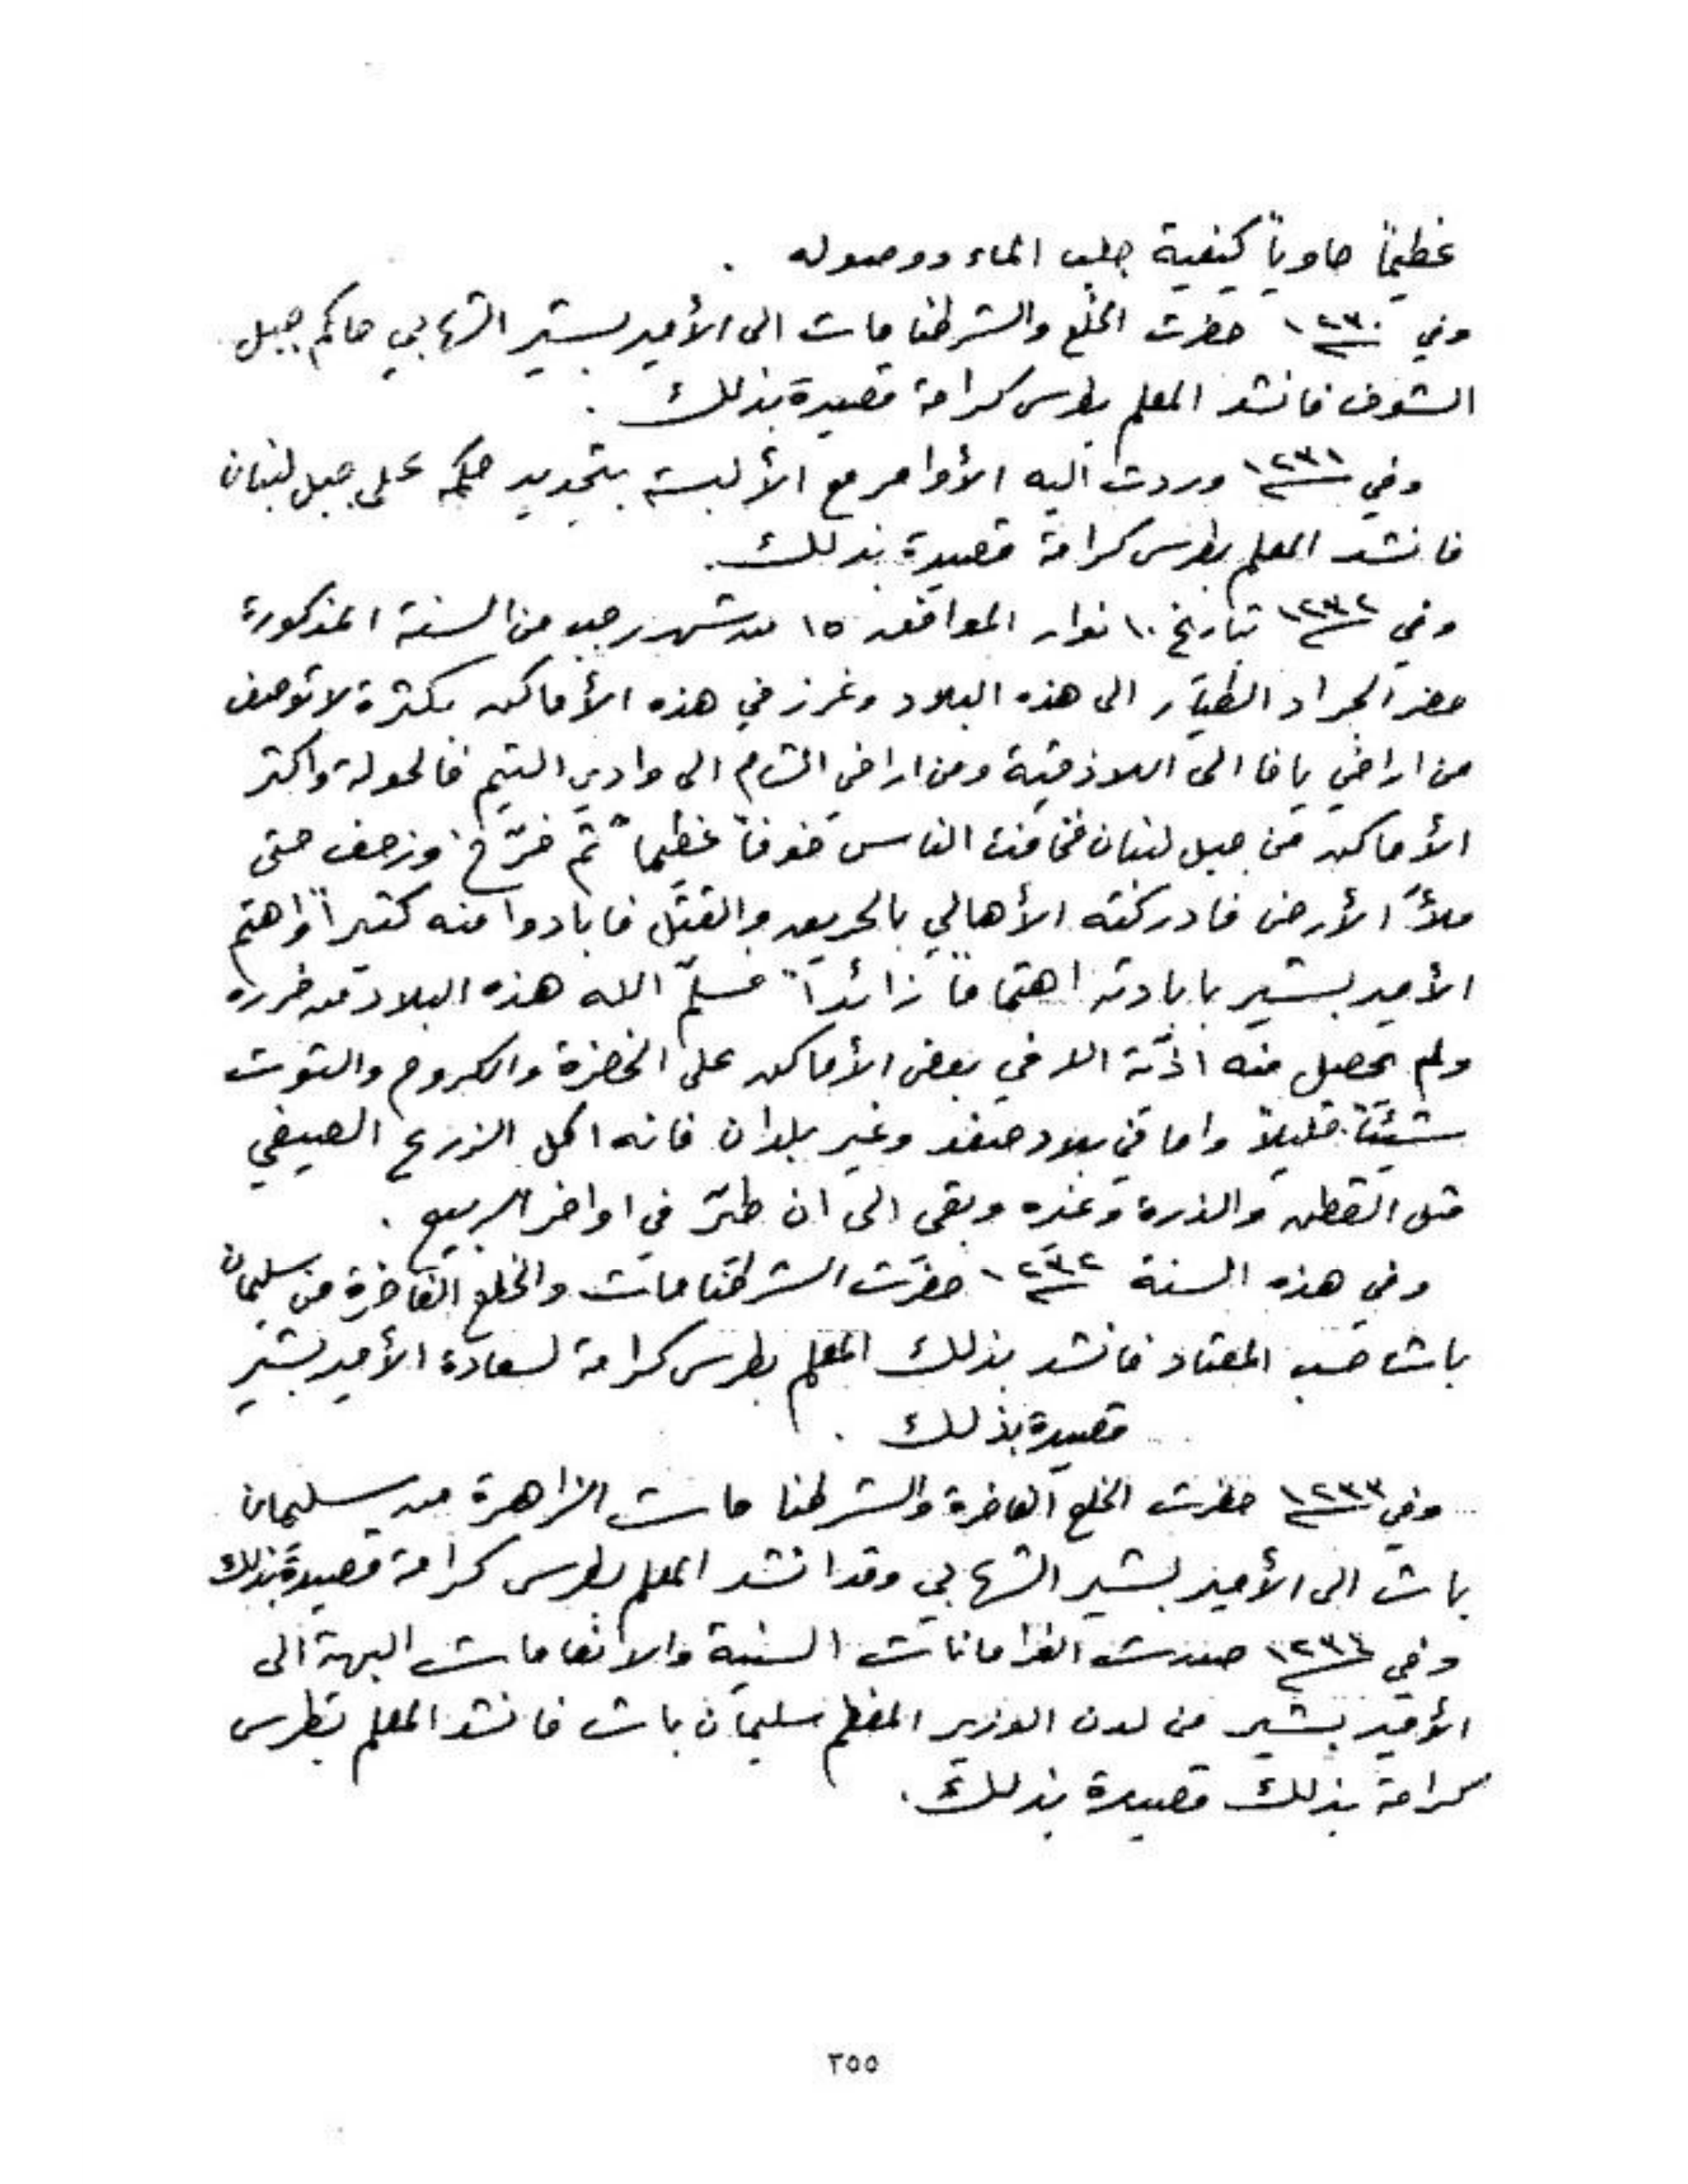 عظيماً حاوياً كيفية جلب الماء ووصوله .
وفي ١٢٣٠ حضرت الخلع والشرطنامات الى الأمير بشير الشهابي حاكم جبل
الشوف فانشد المعلم بطرس كرامة قصيدة بذلك .
وفي ١٢٣١ وردت اليه الأوامر مع الألبسة بتجديد حكمه على جبل لبنان
فانشد المعلم بطرس كرامة قصيدة بذلك .
وفي ١٢٣٢ تاريخ ١٠ نوار الموافق ١٥ من شهر رجب من السنة المذكورة
حضر الجراد الطيّار الى هذه البلاد وغرز في هذه الأماكن بكثرة لا توصف
من اراضي يافا الى اللاذقية ومن اراضي الشام الى وادي التيم فالحولة واكثر
الأماكن من جبل لبنان فخافت الناس خوفاً عظيماً ثم فرّخ وزحف حتى
ملأ الأرض فادركته الأهالي بالحريق والقتل فابادوا منه كثيراً واهتم
الأمير بشير بابادته اهتماماً زائداً فسلّم الله هذه البلاد من ضرره
ولم يحصل منه اذيّة الا في بعض الأماكن على الخضرة والكروم والتوت
شيئاً قليلاً واما في بلاد صفد وغير بلدان فانه اكل الزرع الصيفي
مثل القطن والذرة وغيره وبقي الى ان طيّر في اواخر الربيع .
وفي هذه السنة ١٢٣٢ حضرت الشرطنامات والخلع الفاخرة من سليمان
باشا حسب المعتاد فانشد بذلك المعلم بطرس كرامة لسعادة الأمير بشير
قصيدة بذلك .
وفي ١٢٣٣ حضرت الخلع الفاخرة والشرطنامات الزاهرة من سليمان
باشا الى الأمير بشير الشهابي وقد انشد المعلم بطرس كرامة قصيدة بذلك
وفي ١٢٣٤ صدرت الفرامانات السنية والانعامات البهية الى
الأمير بشير من لدن الوزير المعظم سليمان باشا فانشد المعلم بطرس
كرامة بذلك قصيدة بذلك .
٢٥٥